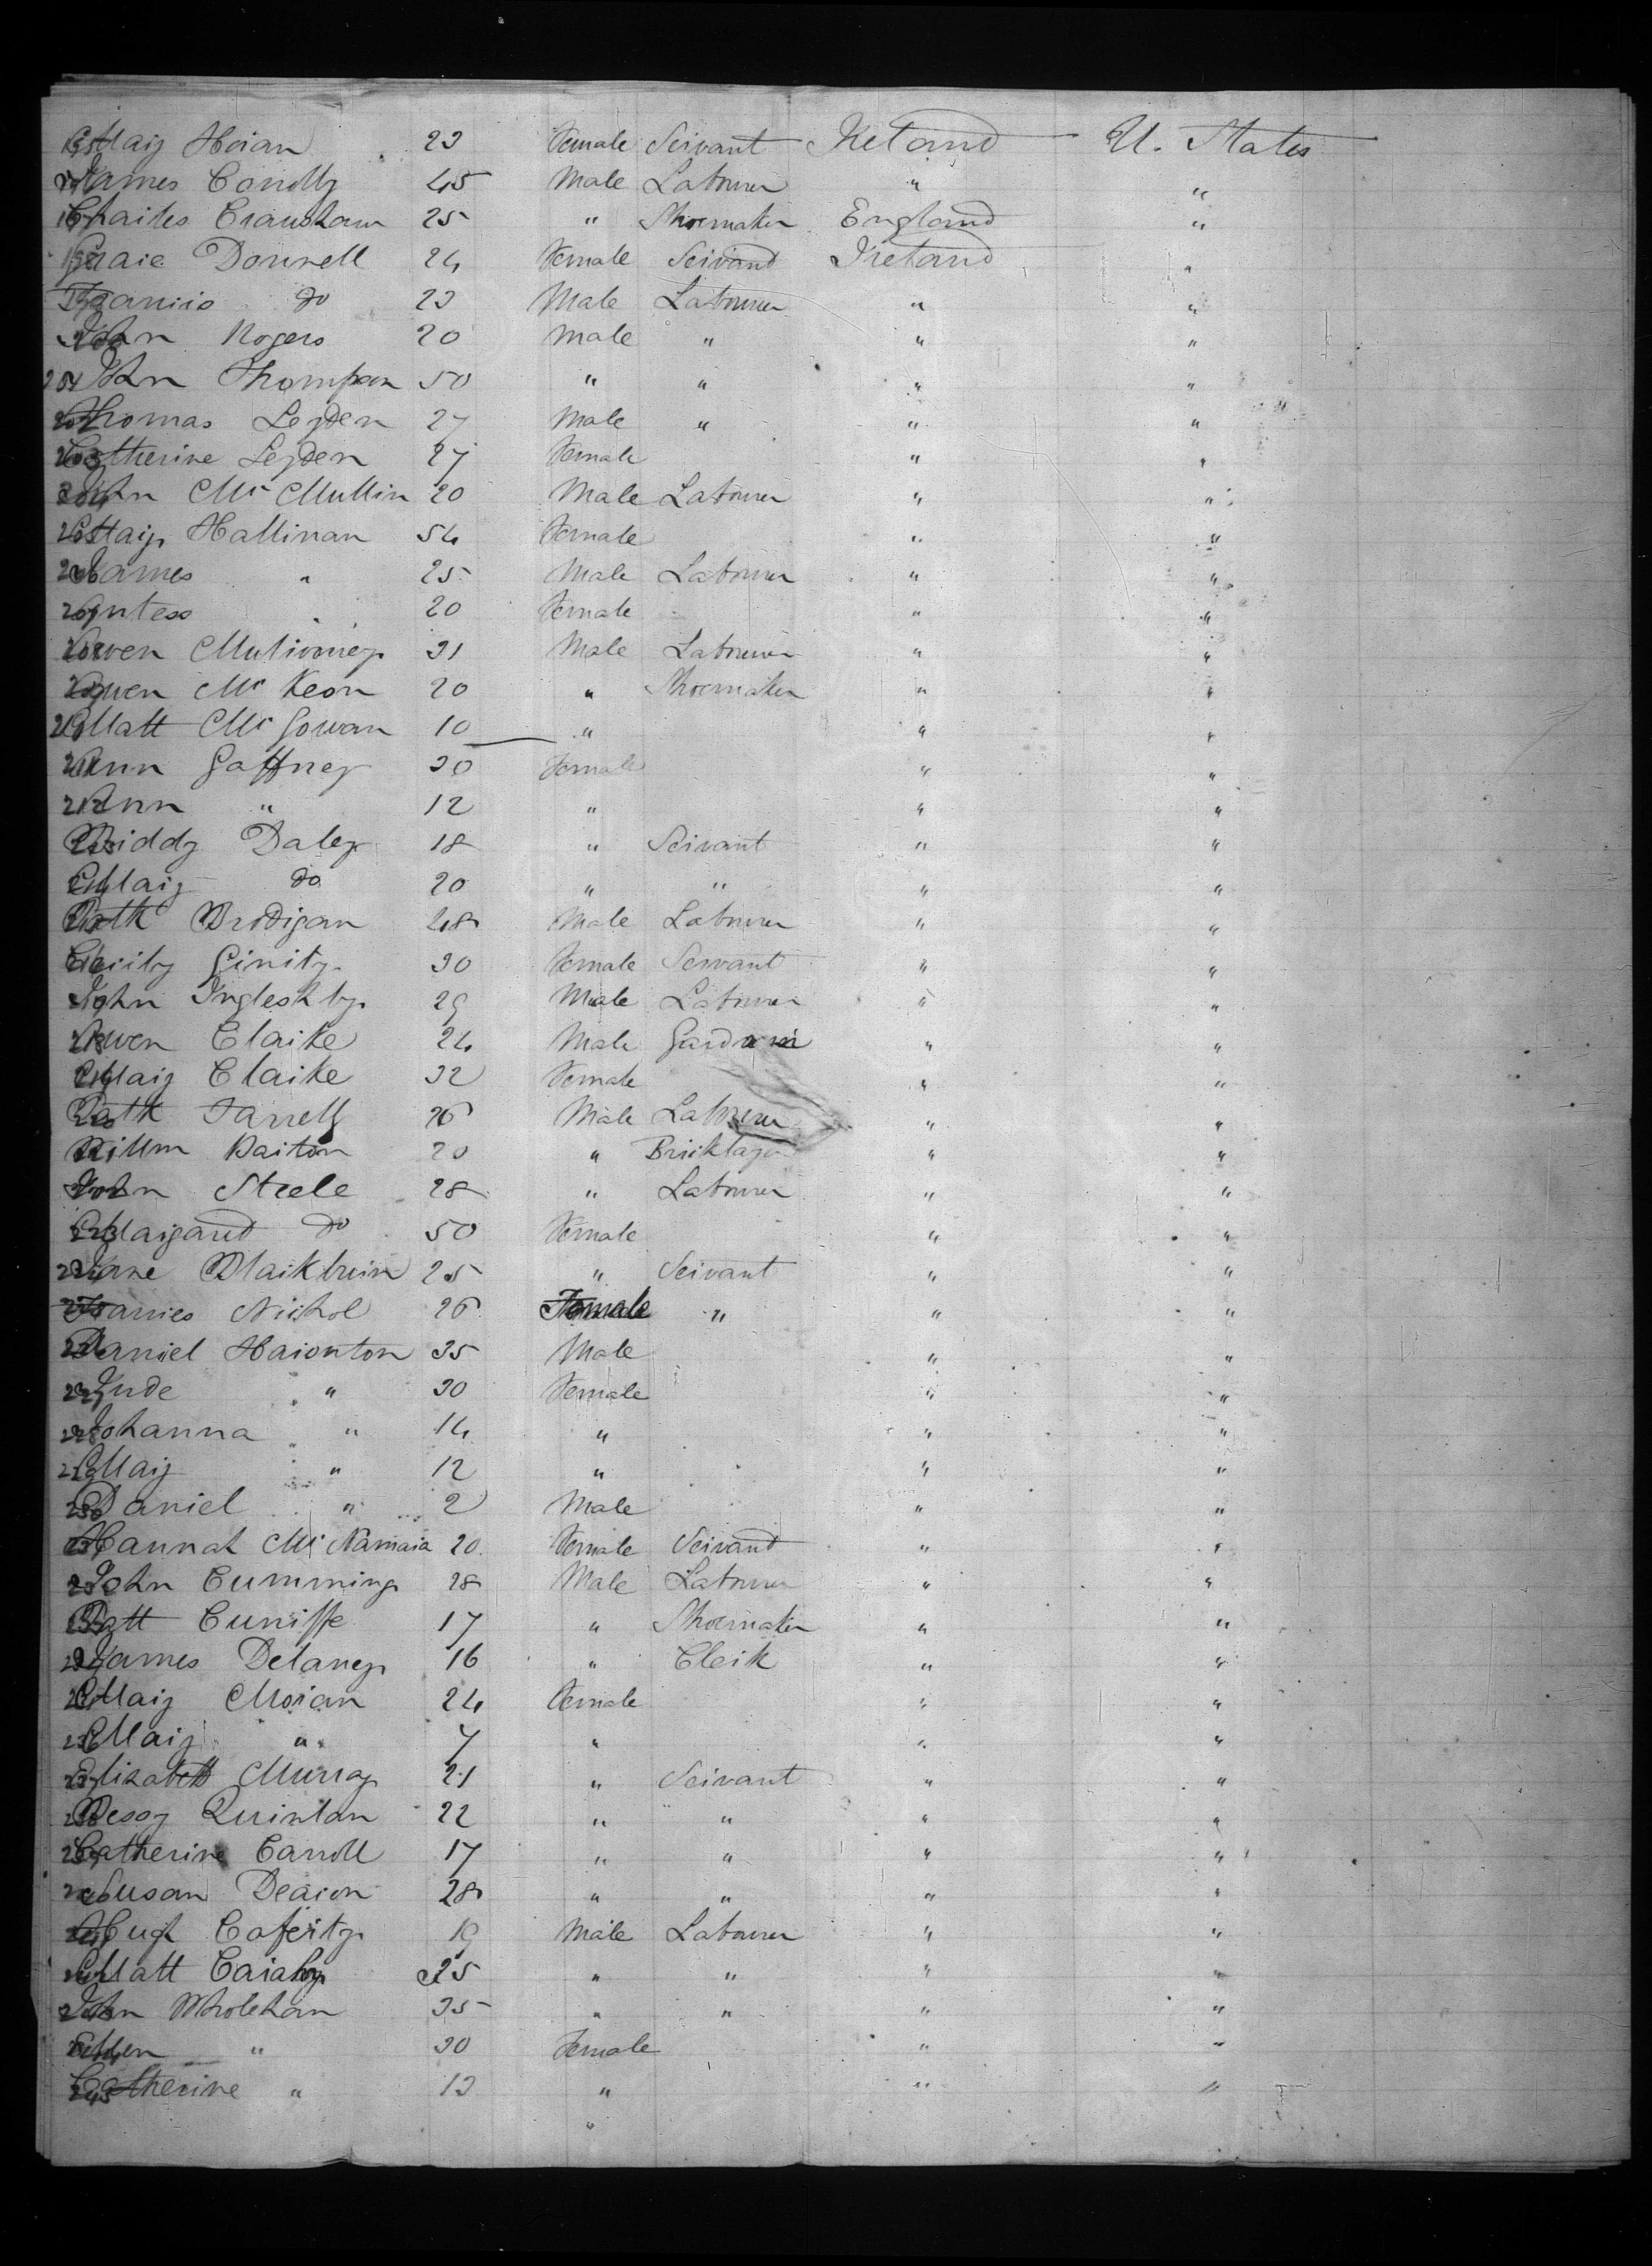 195 Mary Horan 23 Female Servant Ireland U. States
James Conolly 45 Male Labourer " "
Charles Cranshaw 25 " Shoemaker England "
Grace Donnell 24 Female Servant Ireland "
Francis do 23 Male Labourer " "
John Rogers 20 Male " " "
201 John Thompson 50 " " " "
202 Thomas Leyden 27 Male " " "
203 Catherine Leyden 27 Female " "
204 John McMullin 20 Male Labourer " "
205 Mary Hallinan 54 Female " "
206 James " 25 Male Labourer " "
207 " 20 Female " "
208 Owen Mulivoney 31 Male Labourer " "
209 Owen McKeon 20 " Shoemaker " "
210 Matt McGowan 10 " " "
211 Ann Gaffney 30 Female " "
212 Ann " 12 " " "
213 Biddy Daley 18 " Servant " "
214 Mary do 20 " " " "
215 Patk Bridigan 48 Male Labourer " "
216 Cicily Ginity 30 Female Servant " "
217 John Ingleshby 29 Male Labourer " "
218 Owen Clarke 24 Male Gardner " "
219 Mary Clarke 32 Female " "
220 Patk Farrell 26 Male Labourer " "
221 Willm Barton 20 " Bricklayer " "
222 John Steele 28 " Labourer " "
223 Margaret do 50 Female " "
224 Jane Blackburn 25 " Servant " "
225 Frances Nichol 26 Female " " "
226 Daniel Haronton 35 Male " "
227 Jude " 30 Female " "
228 Johanna " 14 " " "
229 Mary " 12 " " "
230 Daniel " 2 Male " "
231 Hannah McNamara 20 Female Servant " "
232 John Cumming 28 Male Labourer " "
233 Patt Cuniffe 17 " Shoemaker " "
234 James Delaney 16 " Clerk " "
235 Mary Moran 24 Female " "
236 Mary " 7 " " "
237 Elizabeth Murray 21 " Servant " "
238 Bessy Quinlan 22 " " " "
239 Catherine Carroll 17 " " " "
240 Susan Deacon 28 " " " "
241 Hugh Caferty 19 Male Labourer " "
242 Matt 25 " " " "
243 John Wholehan 35 " " " "
244 Ellen " 30 Female " "
245 Catherine " 13 " " "
"